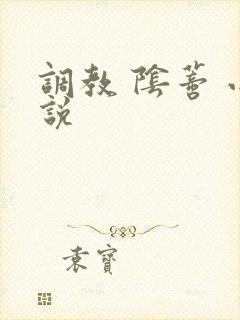 調教 陰蒂 小
說
袁寶